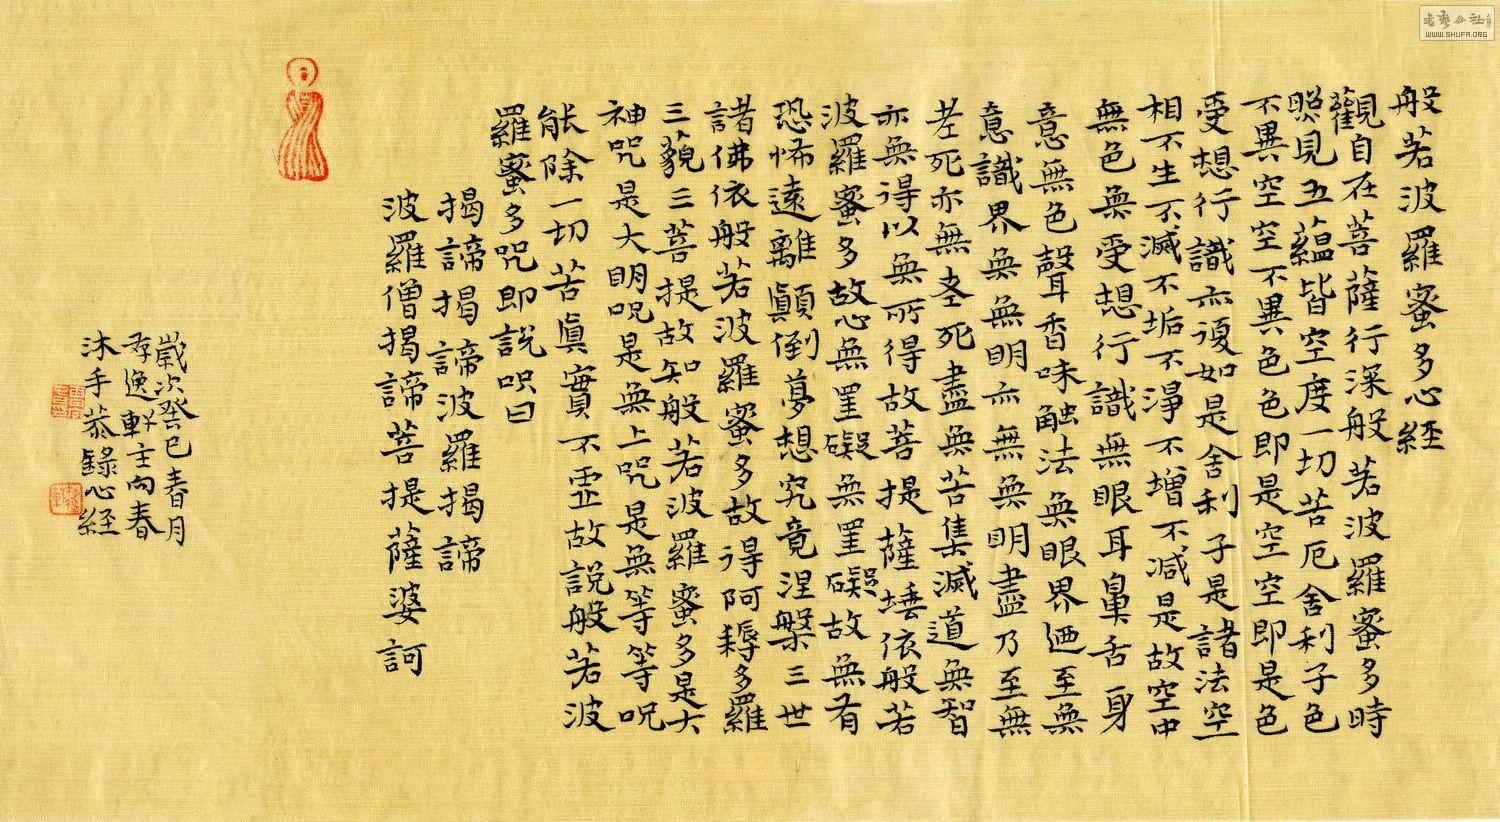 般若波羅蜜多心経
觀自在菩薩行深般若波羅蜜多時
照見五蘊皆空度一切苦厄舍利子色
不異空空不異色色即是空空即是色
受想行識亦復如是舍利子是諸法空
相不生不滅不垢不淨不增不減是故空中
無色無受想行識無眼耳鼻舌身
意無色聲香味触法無眼界廼至無
意識界無無明亦無無明盡乃至無
老死亦無老死盡無苦集滅道無智
亦無得以無所得故菩提薩埵依般若
波羅蜜多故心無罣礙無罣礙故無有
恐怖遠離顛倒夢想究竟涅槃三世
諸佛依般若波羅蜜多故得阿耨多羅
三藐三菩提故知般若波羅蜜多是大
神咒是大明咒是無上咒是無等等咒
能除一切苦眞實不虛故說般若波
羅蜜多咒即說呪曰
揭諦揭諦波羅揭諦
波羅僧揭諦菩提薩婆訶
歲次癸巳春月
逸軒主向春
沐手恭錄心経
WWW.SHUFA.ORG